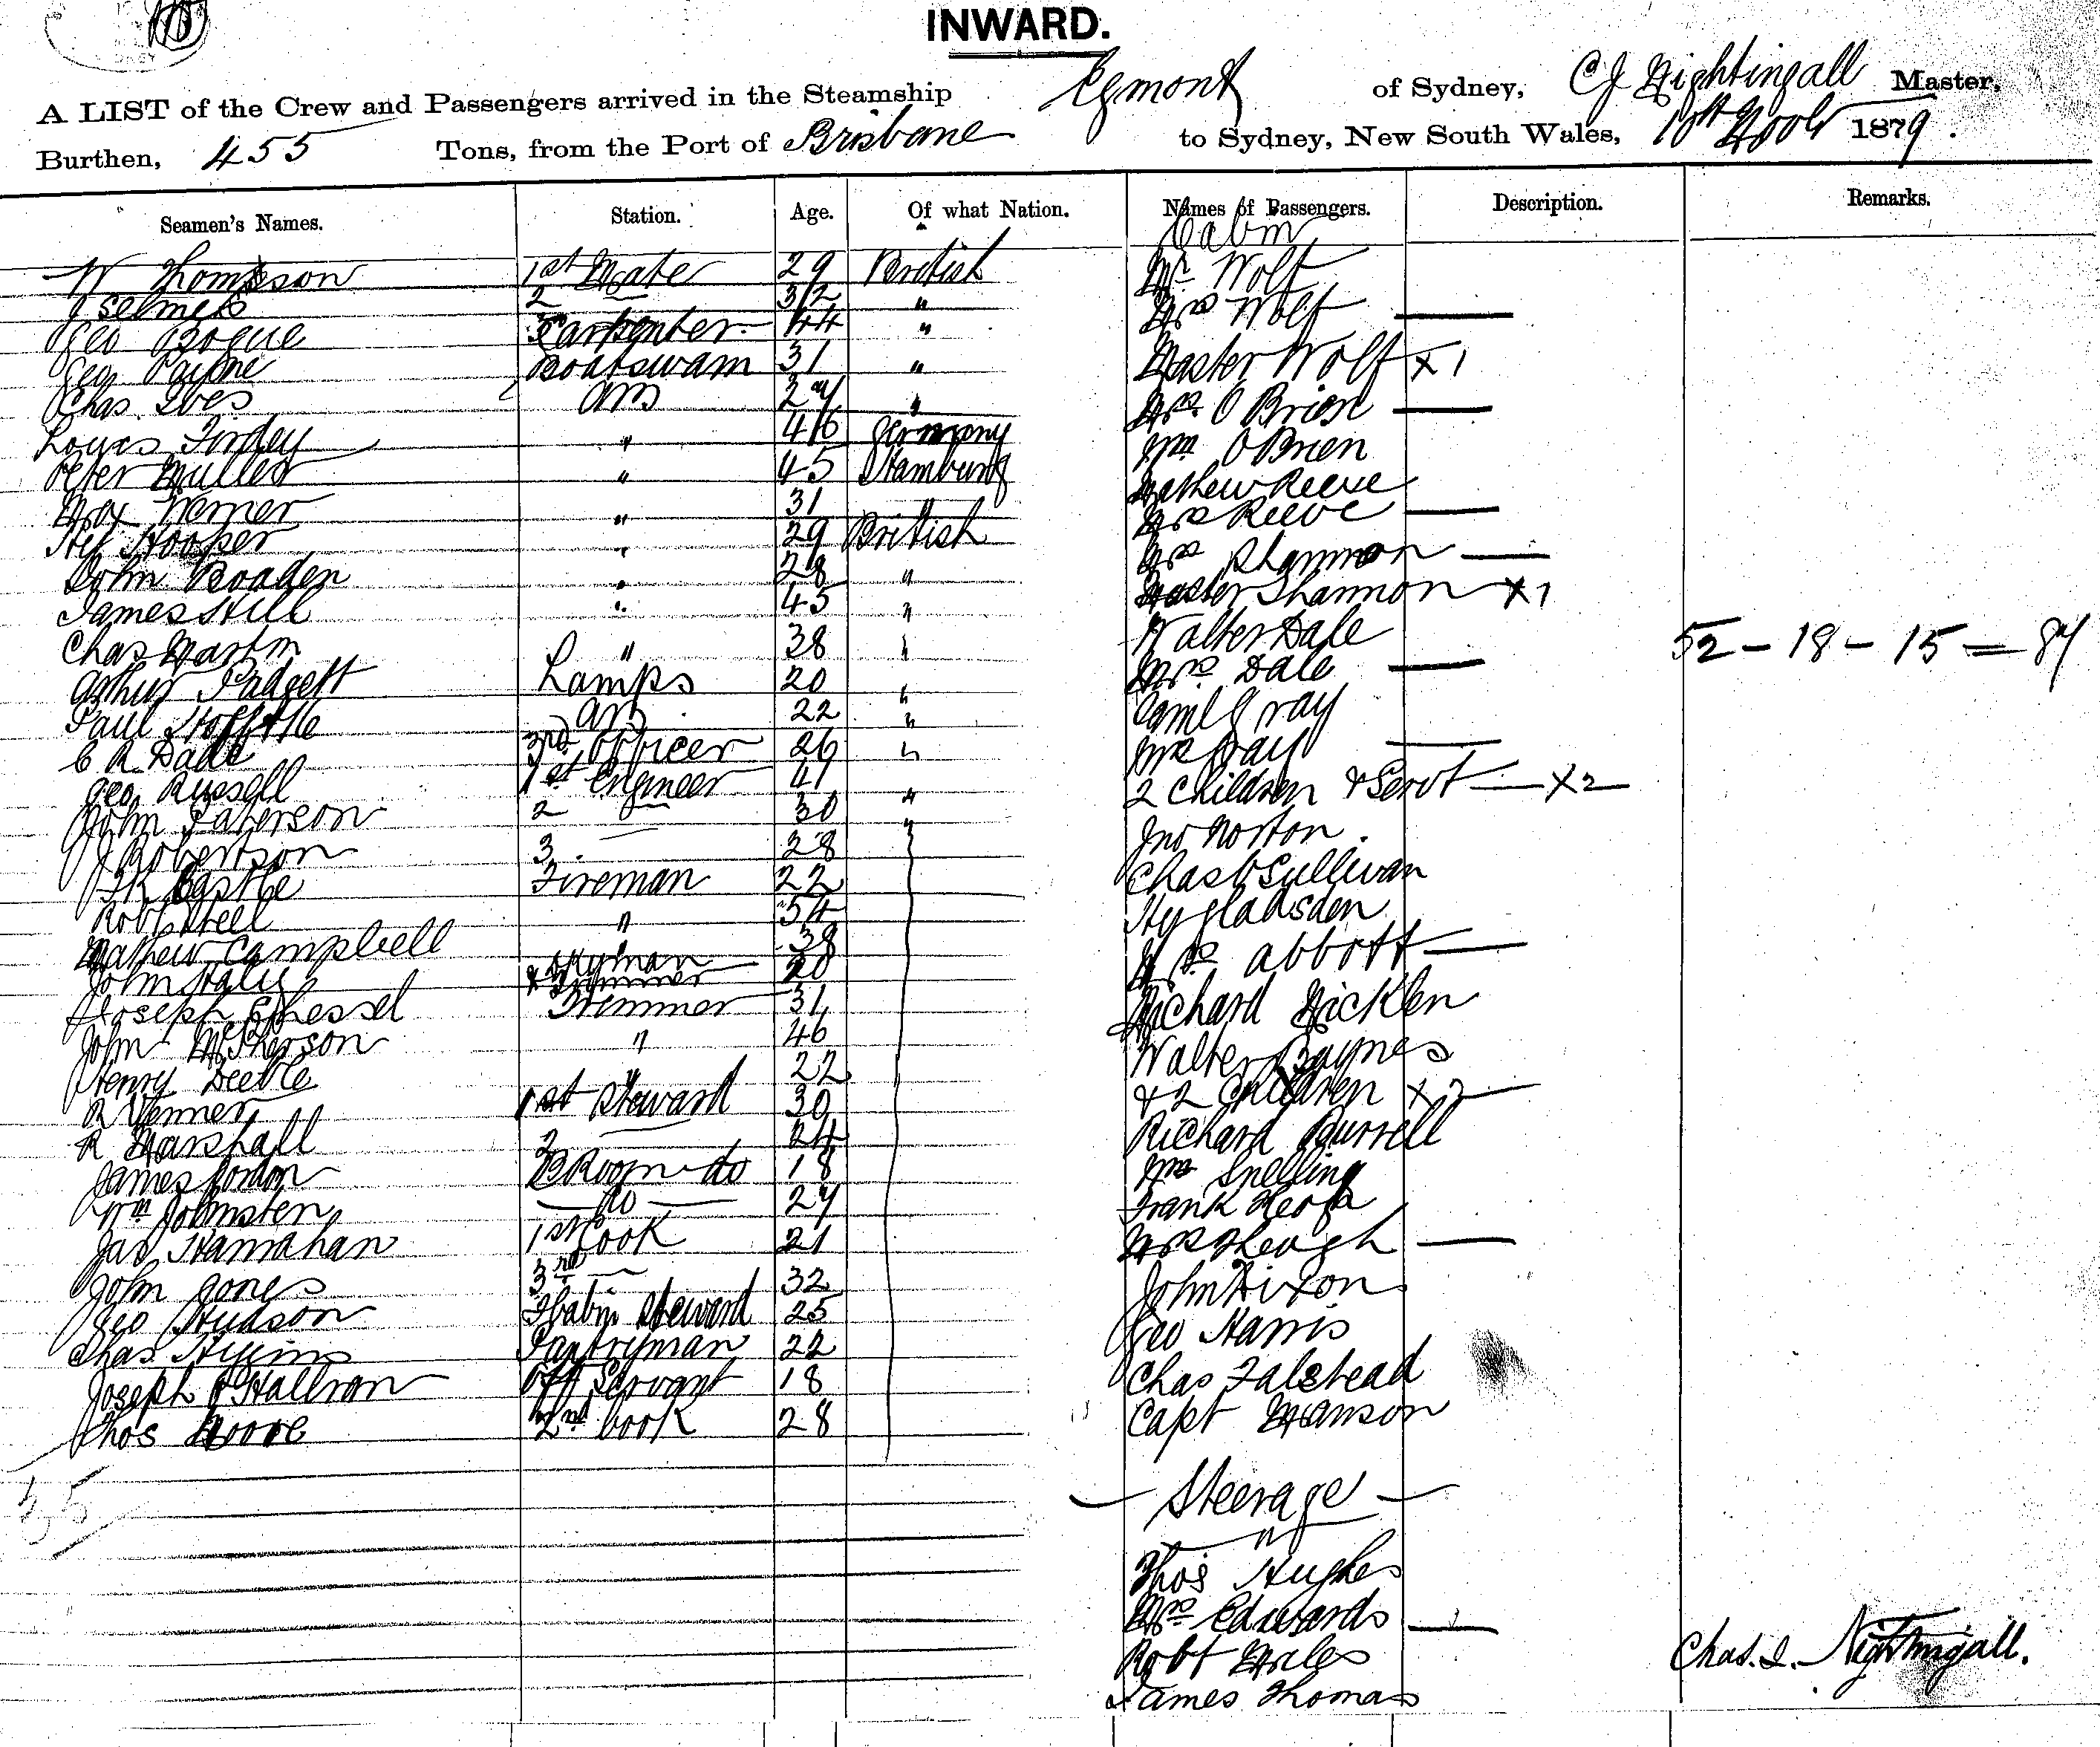 INWARD.
A LIST of the Crew and Passengers arrived in the Steamship Egmont of Sydney, C J Nightingall Master,
Burthen, 455 Tons, from the Port of Brisbane to Sydney, New South Wales, 10th 1879.
Seamen's Names. Station. Age. Of what Nation. Names of Passengers. Description. Remarks.
Cabin
W Thompson 1st Mate 29 British Mr Wolf
J Selmes 2 — 32 " Mrs Wolf —
Geo Bogue Carpenter 44 "
Geo Payne Boatswain 31 " Master Wolf x 1
Chas Ives ABs 24 " Mrs O Brien —
Louis 46 Germany Wm O Brien
Peter Muller " 45 Hamburg Mathew Reeve
Max Werner " 31 " Mrs Reeve —
Hy Hooper " 29 British Mrs Shannon —
John Boaden " 28 " Master Shannon x 1
James Hill " 45 " Walter Dale
Chas Martin " 38 " Mrs Dale — 52 - 18 - 15 = 84
Arthur Padgett Lamps 20 "
Paul AB 22 " Gray
C R Dade 3rd Officer 26 " Mrs Gray —
Geo Russell 1st Engineer 41 2 Children & Servt — x 2
John Paterson 2 — 30 " Jno Norton
J Robertson 3 28 " Chas O Sullivan
Castle Fireman 22 Hy Gladsden
Robt " 54
Mathew Campbell 38 Mrs Abbott —
John Haly & Trimmer 20 Richard Hicklen
Joseph Trimmer 31
John McPherson " 46 Walter Baynes
Henry Deeble " 22 & 2 Children x 2
R Venner 1st Steward 30 Richard Burrell
R Marshall 2 — 24 Snelling
James Gordon B Room do 18 Frank
Wm Johnston — do — 24 Mrs Keough —
Jas Hanrahan 1st Cook 21
John Jones 3rd — 32 John Dixon
Geo Hudson F Cabin Steward 25 Geo Harris
Chas Pantryman 22 Chas Falstead
Joseph O'Hallron Off Servant 18 Capt Manson
Thos Moore 2nd Cook 28
35
— Steerage —
Thos Hughes
Mrs Edwards —
Robt Miles Chas. J. Nightingall.
James Thomas